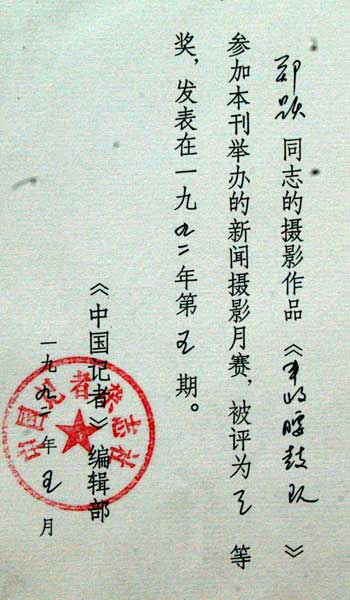 郑 同志的摄影作品《腰鼓队》
参加本刊举办的新闻摄影月赛，被评为三等
奖，发表在一九九二年第五期。
《中国记者》编辑部
一九九二年五月
中国记者杂志社